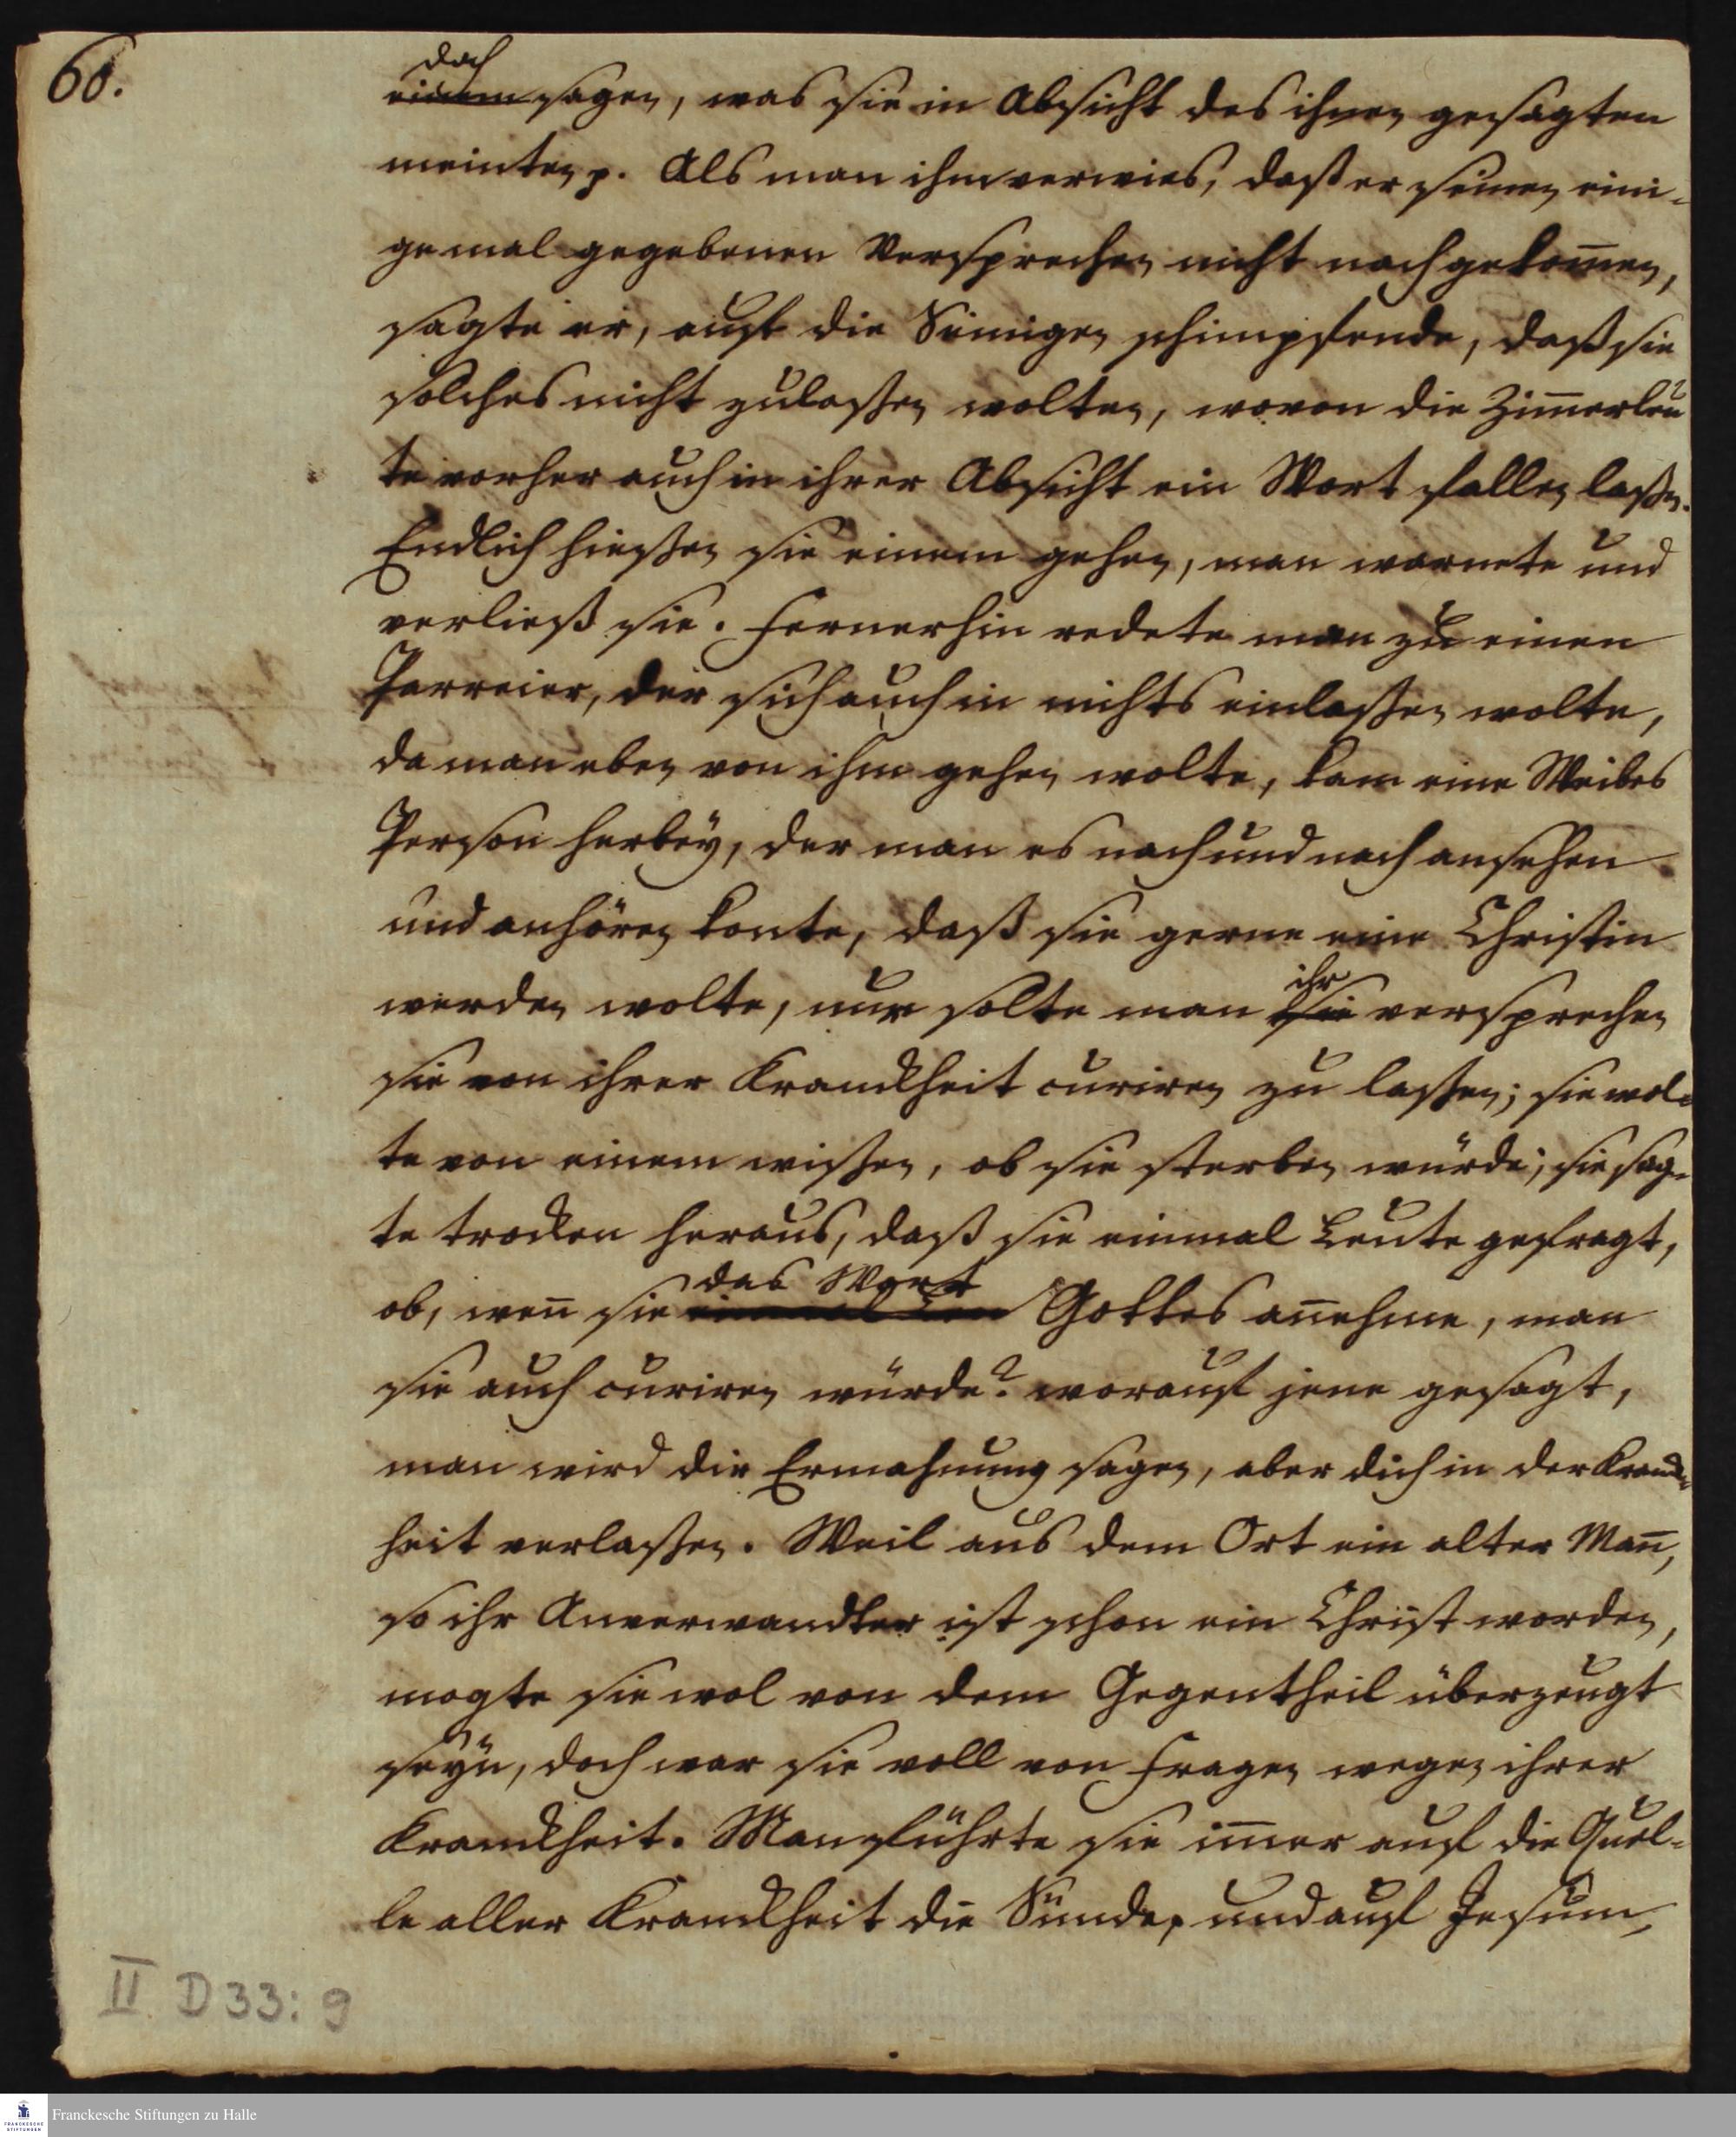 60.
doch
einem sagen, was sie in Absicht des ihnen gesagten
meinten p. Als man ihm verwies, daß er seinen eini-
gemal gegebenen Versprechen nicht nachgekom̄en,
sagte er, auf die Seinigen schimpfende, daß sie
solches nicht zulaßen wolten, wovon die Zim̄erleu
te vorher auch in ihrer Absicht ein Wort fallen laßen.
Endlich hießen sie einem gehen, man warnete und
verließ sie. Fernerhin redete man zu einen
Parreier, der sich auch in nichts einlaßen wolte,
da man eben von ihm gehen wolte, kam eine Weibes
Person herbey, der man es nach und nach ansehen
und anhören konte, daß sie gerne eine Christin
ihr
werden wolte, nur solte man sie versprechen
sie von ihrer Kranckheit curiren zu laßen; sie wol-
te von einem wißen, ob sie sterben würde; sie sag-
te trocken heraus, daß sie einmal Leute gefragt,
das Wort
ob, wen̄ sie Gottes an̄ehme, man
sie auch curiren würde? worauf jene gesagt,
man wird dir Ermahnung sagen, aber dich in der Kranck-
heit verlaßen. Weil aus dem Ort ein alter Man̄,
so ihr Anverwandter ist schon ein Christ worden,
mogte sie wol von dem Gegentheil überzeugt
seyn, doch war sie voll von Fragen wegen ihrer
Kranckheit. Man führte sie im̄er auf die Quel-
le aller Kranckheit die Sünde, und auf Jesum,
II D 33: 9
FRANCKESCHE STIFTUNGEN
Franckesche Stiftungen zu Halle